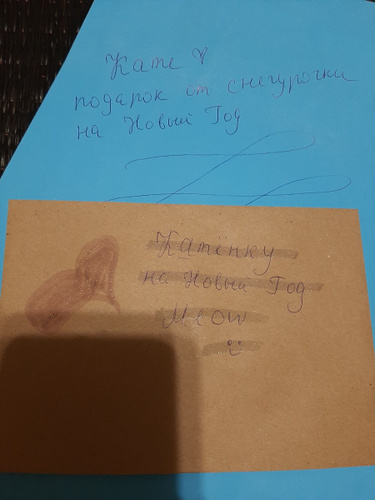 Кате ♡
подарок от снегурочки
на Новый Год
Катёнку
на Новый Год
Meow